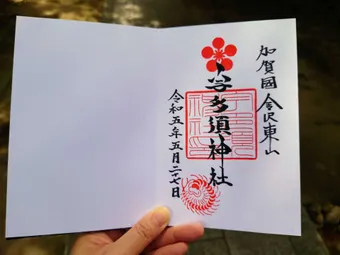 加賀國金沢東山
宇多須神社
令和五年五月二十七日